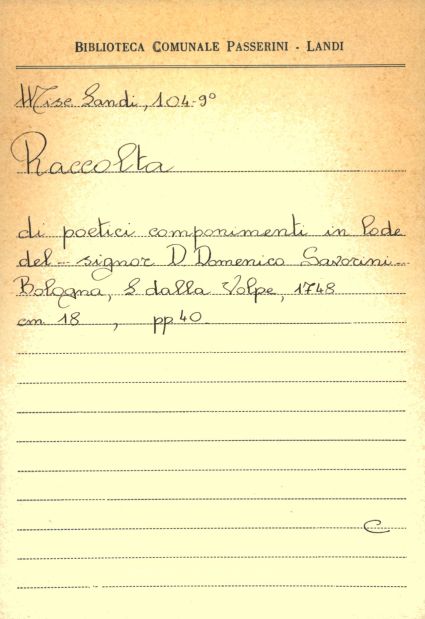 BIBLIOTECA COMUNALE PASSERINI - LANDI
Misc Landi, 104-9°
Raccolta
di poetici componimenti in lode
del - signor D Domenico Savorini -
Bologna, L dalla Volpe, 1748
cm 18 , pp. 40
C